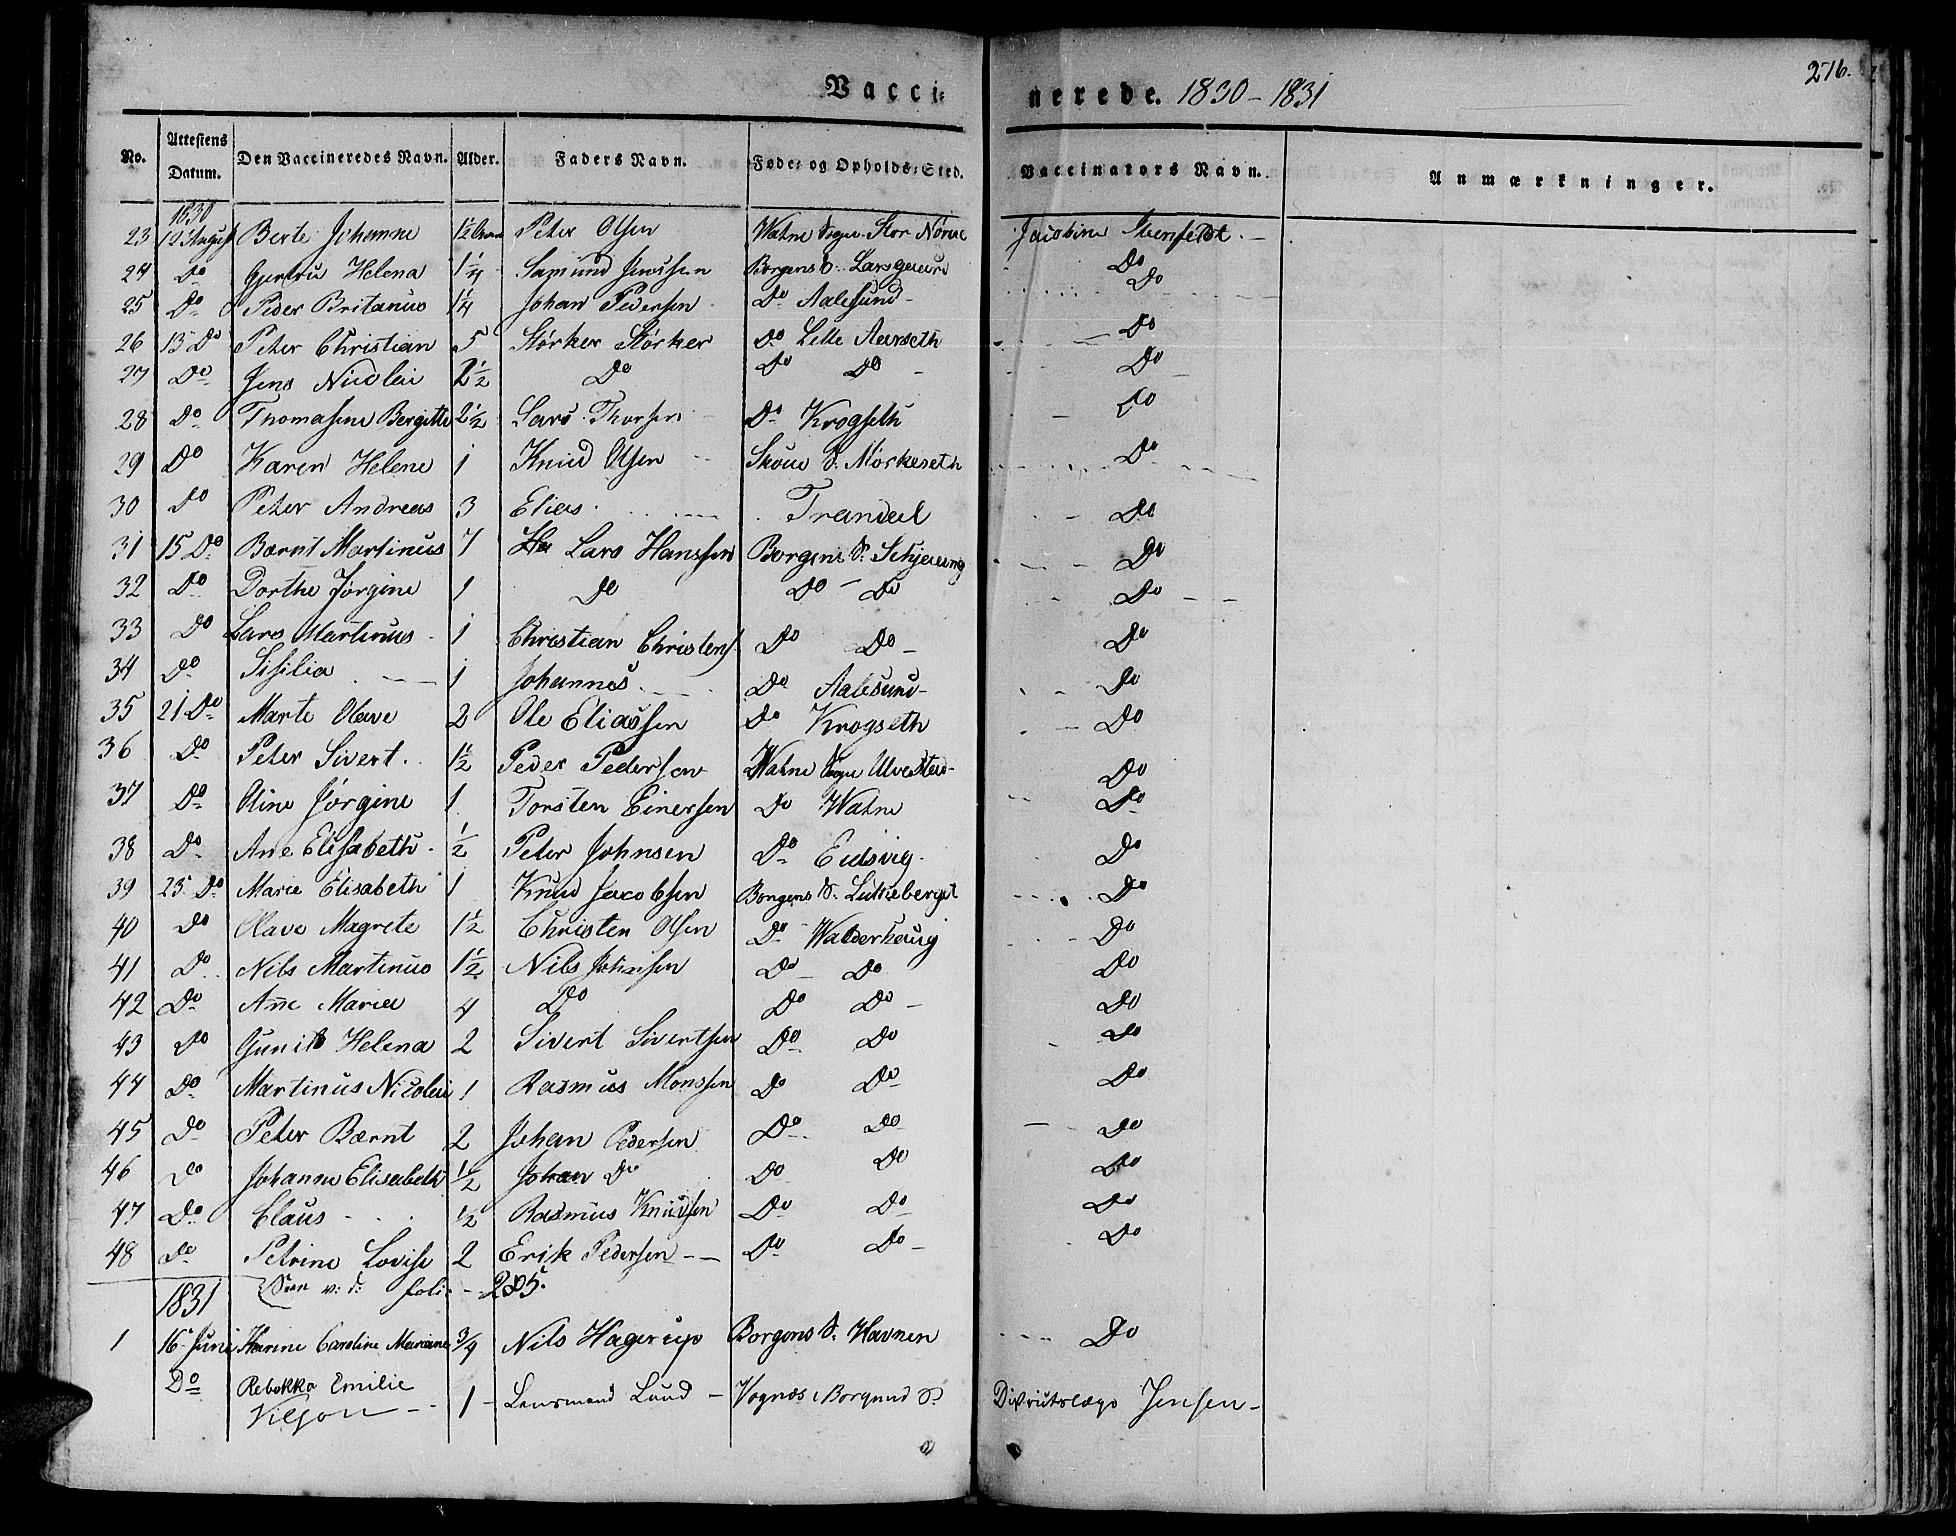 276.
Vaccinerede. 1830 - 1831
No. | Attestens Datum. | Den Vaccineredes Navn. | Alder. | Faders Navn. | Føde- og Opholds-Sted. | Vaccinators Navn. | Anmærkninger.
1830
23 | August | Berte Johanne | 1½ | Peter Olsen | Watne Sogn Stor | Jacobine
24 | Do | Helena | 1¼ | Samund | Borgens S. | Do
25 | Do | Peder Britanus | 1¼ | Johan Pedersen | Do Aalesund | Do
26 | 13 Do | Peter Christian | 5 | Størker Størker | Do Lille Aarseth | Do
27 | Do | Jens Nicolai | 2½ | Do | Do Do | Do
28 | Do | Thomasine Bergitte | 2½ | Lars Thorsen | Do Krogseth | Do
29 | Do | Karen Helene | 1 | Knud Olsen | Skoue S. Morkeseth | Do
30 | Do | Peter Andreas | 3 | Elias | Trandal | Do
31 | 15 Do | Bærnt Martinus | 7 | Lars Hanssen | Borgens S. | Do
32 | Do | Dorthe Jørgine | 1 | Do | Do - Do | Do
33 | Do | Lars Martinus | 1 | Christian Christens | Do Do | Do
34 | Do | Sisilia | 1 | Johannes | Do Aalesund | Do
35 | 21 Do | Marte Olave | 2 | Ole Eliassen | Do Krogseth | Do
36 | Do | Peter Sivert | 1½ | Peder Pedersen | Watne Sogn Ulvestad | Do
37 | Do | Oline Jørgine | 1 | Torsten Einersen | Do Watne | Do
38 | Do | Ane Elisabeth | ½ | Peter Johnsen | Do Eidsvig | Do
39 | 25 Do | Marie Elisabeth | 1 | Knud Jacobsen | Borgens S. | Do
40 | Do | Olave Magrete | 1½ | Christen Olsen | Do Walderhaug | Do
41 | Do | Nils Martinus | 1½ | Nils Johnsen | Do Do | Do
42 | Do | Ane Maria | 4 | Do | Do Do | Do
43 | Do | Gunild Helena | 2 | Sivert Sivertsen | Do Do | Do
44 | Do | Martinus Nicolai | 1 | Rasmus Monssen | Do Do | Do
45 | Do | Peter Bærnt | 2 | Johan Pedersen | Do Do | Do
46 | Do | Johanne Elisabeth | ½ | Johan Do | Do Do | Do
47 | Do | Claus | ½ | Rasmus Knudsen | Do Do | Do
48 | Do | Petrine Lovise | 2 | Erik Pedersen | Do Do | Do
v: d: foli
1831
1 | 16 Juni | Hanne Caroline Mariane | ¾ | Nils Hagerup | Borgens S. Havnen | Do
Do | Rebekka Emilie | 1 | Lensmand Lund | Vognæs Borgund S. | Districtslæge Jensen